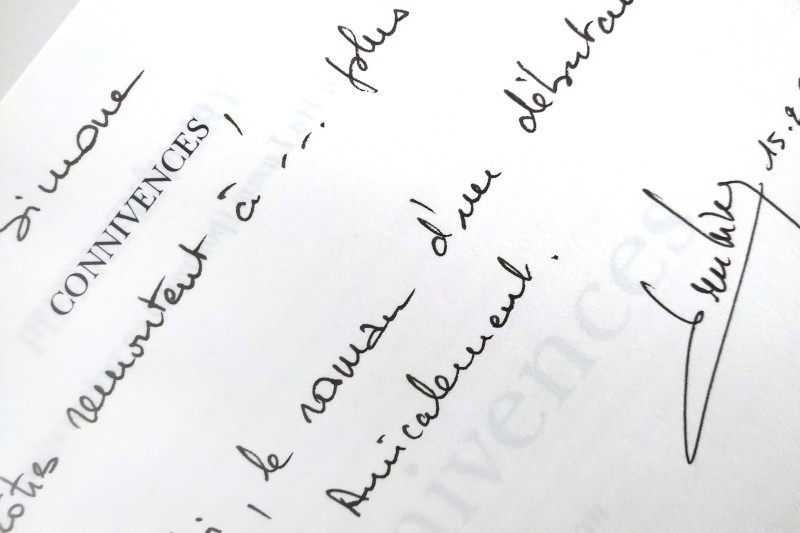 Simone,
CONNIVENCES
remontent à ... plus
, le roman d'une débutan
Amicalement.
15.